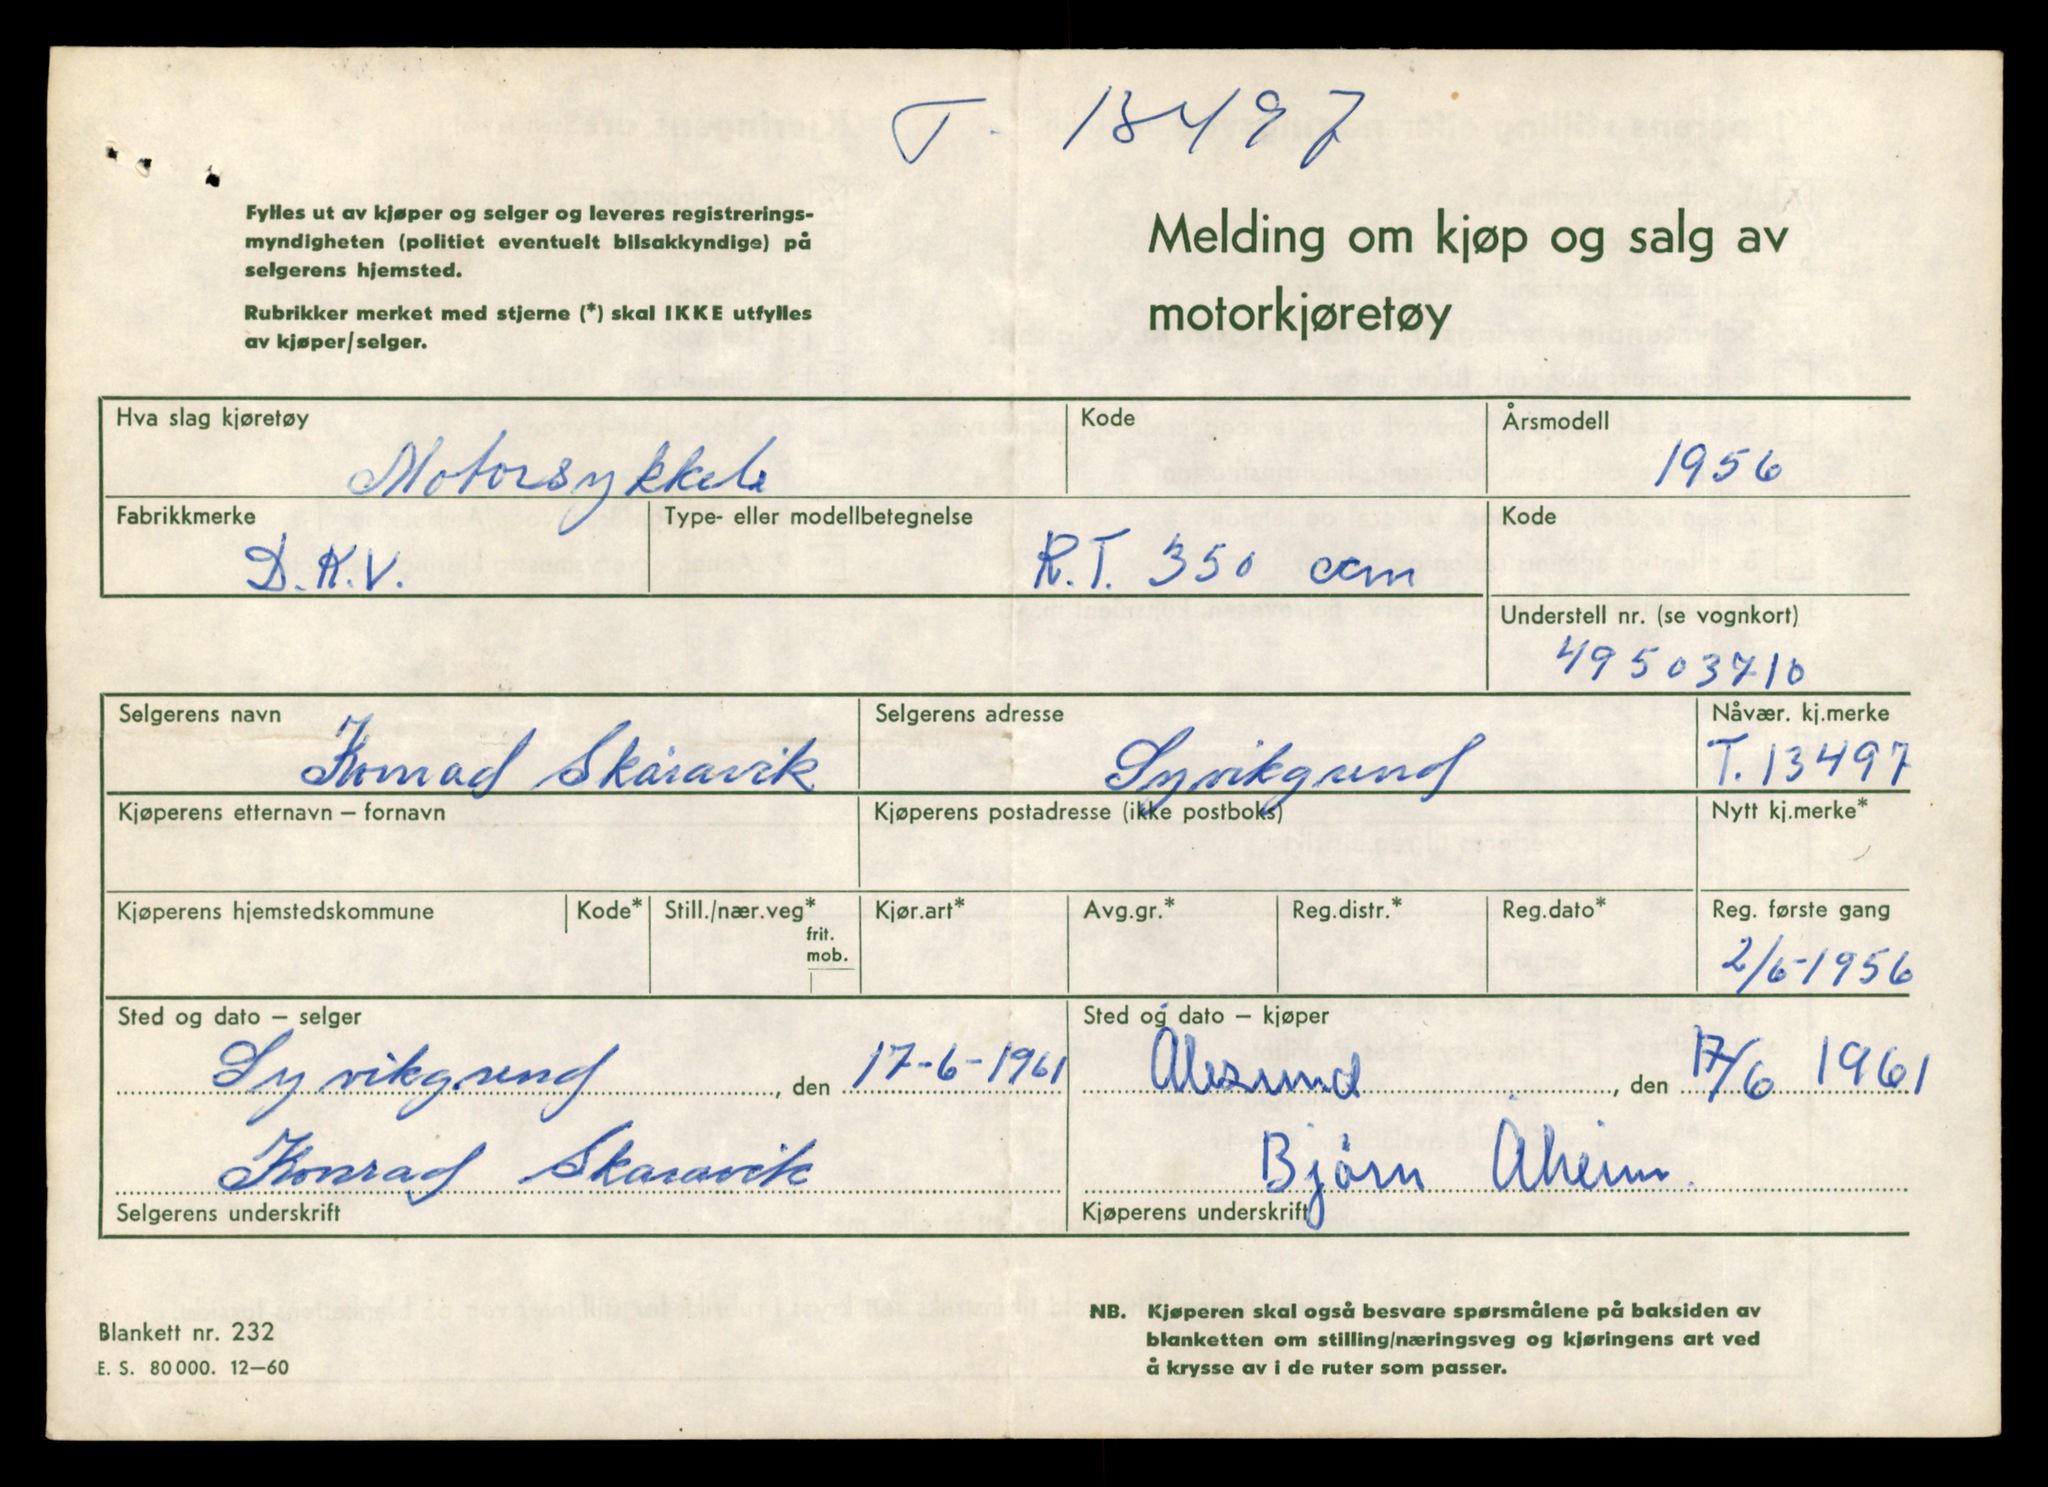 T. 13497
Fylles ut av kjøper og selger og leveres registrerings-
myndigheten (politiet eventuelt bilsakkyndige) på
selgerens hjemsted.
Rubrikker merket med stjerne (*) skal IKKE utfylles
av kjøper/selger.
Melding om kjøp og salg av
motorkjøretøy
Hva slag kjøretøy
Motorsykkel
Kode
Årsmodell
1956
Fabrikkmerke
D.K.V.
Type- eller modellbetegnelse
R.T. 350 ccm
Kode
Understell nr. (se vognkort)
49503710
Selgerens navn
Konrad Skåravik
Selgerens adresse
Syvikgrend
Nåvær. kj.merke
T.13497
Kjøperens etternavn – fornavn
Kjøperens postadresse (ikke postboks)
Nytt kj.merke*
Kjøperens hjemstedskommune
Kode*
Still./nær.veg*
frit.
mob.
Kjør.art*
Avg.gr.*
Reg.distr.*
Reg.dato*
Reg. første gang
2/6-1956
Sted og dato – selger
Syvikgrend, den 17-6-1961
Konrad Skaravik
Selgerens underskrift
Sted og dato – kjøper
Ålesund, den 17/6 1961
Bjørn Åheim.
Kjøperens underskrift
Blankett nr. 232
E. S. 80 000. 12–60
NB. Kjøperen skal også besvare spørsmålene på baksiden av
blanketten om stilling/næringsveg og kjøringens art ved
å krysse av i de ruter som passer.